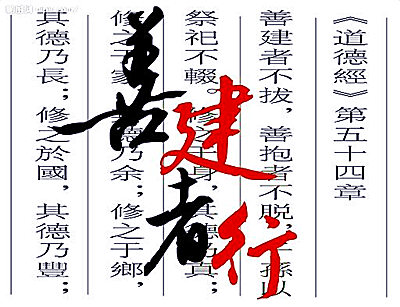 《道德經》第五十四章
善建者不拔，善抱者不脱，孫以
祭祀不輟。修之于身，其德乃真；
修之于家，德乃余；修之于鄉，
其德乃長；修之於國，其德乃豐；
善建者行